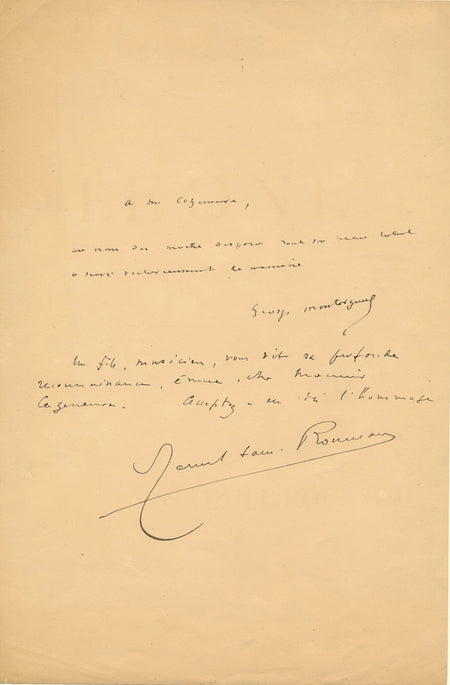 A M. Cazeneuve,
au nom du maître disparu dont son beau talent
a servi victorieusement la mémoire
Georges Montorgueil
Un fils, musicien, vous dit sa profonde
reconnaissance, émue, cher Monsieur
Cazeneuve. Acceptez-en ici l'hommage
Marcel Sam. Rousseau